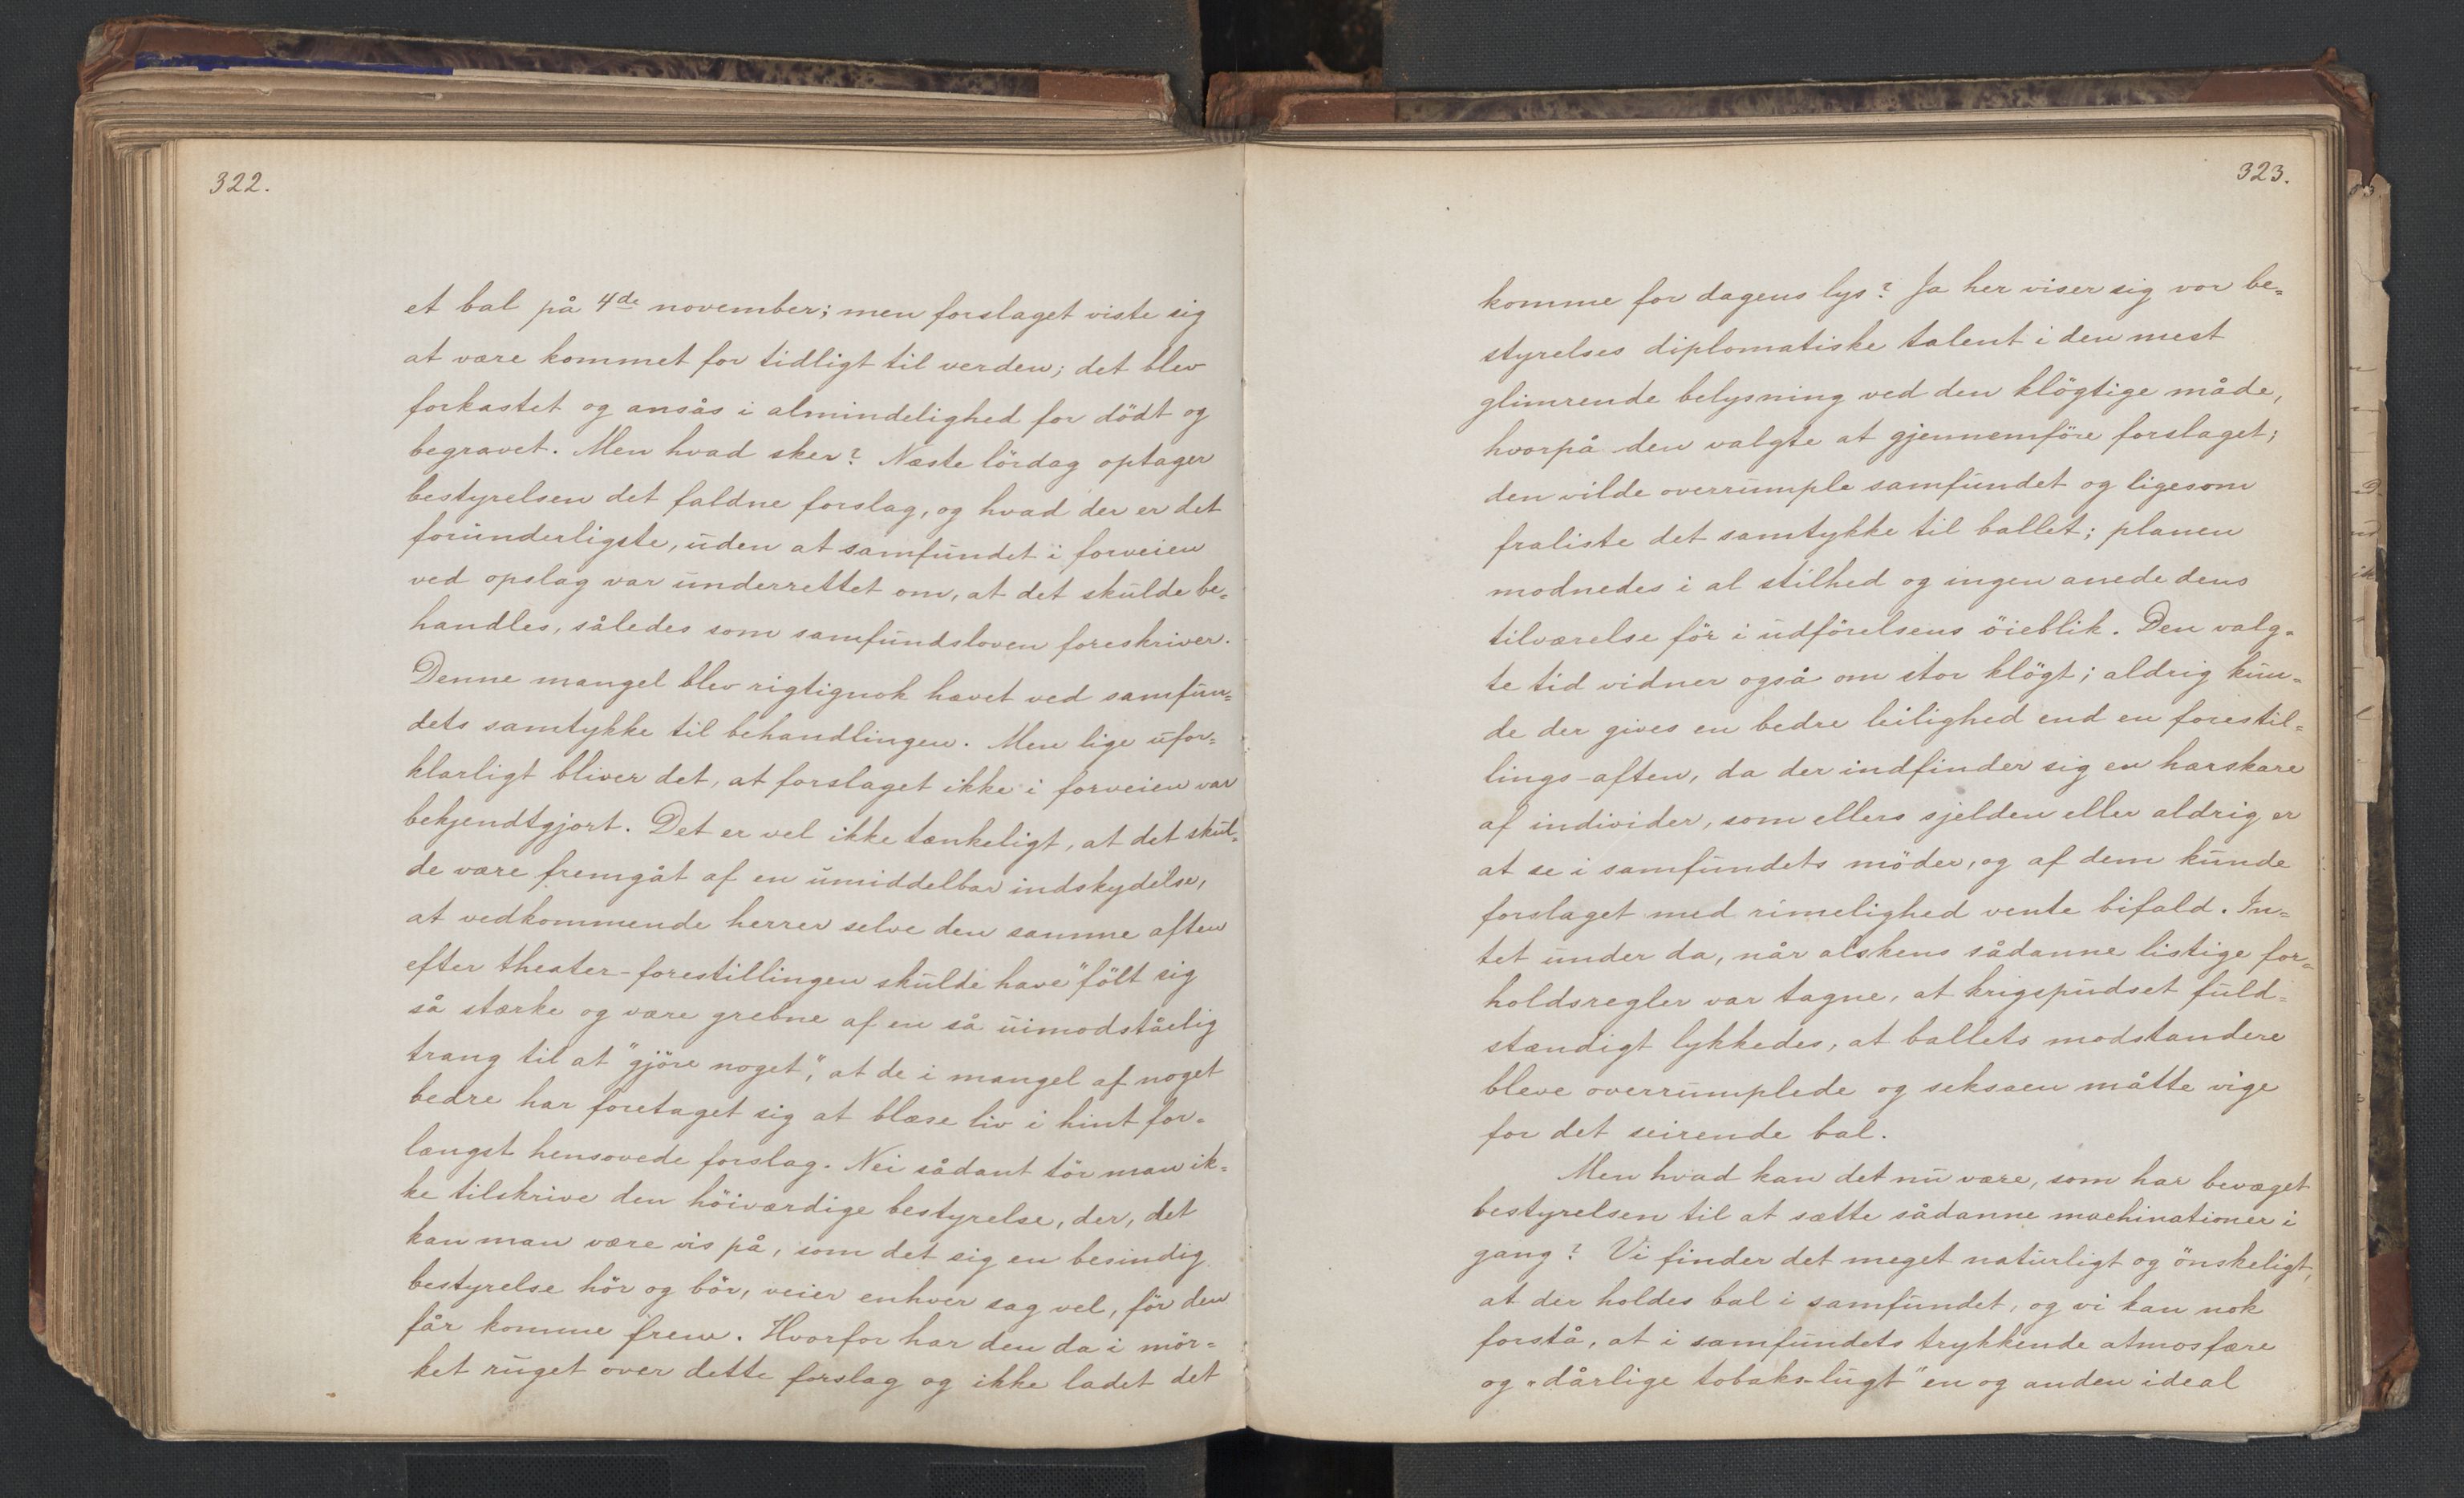 322.
et bal på 4de november; men forslaget viste sig
at være kommet for tidligt til verden; det blev
forkastet og ansås i almindelighed for dödt og
begravet. Men hvad sker? Næste lördag optager
bestyrelsen det faldne forslag, og hvad der er det
forunderligste, uden at samfundet i forveien
ved opslag var underrettet om, at det skulde be=
handles, således som samfundsloven foreskriver.
Denne mangel blev rigtignok hævet ved samfun=
dets samtykke til behandlingen. Men lige ufor=
klarligt bliver det, at forslaget ikke i forveien var
bekjendtgjort. Det er vel ikke tænkeligt, at det skul=
de være fremgåt af en umiddelbar indskydelse,
at vedkommende herrer selve den samme aften
efter theater-forestillingen skulde have "fölt sig
så stærke og være grebne af en så uimodståelig
trang til at "gjöre noget", at de i mangel af noget
bedre har foretaget sig at blæse liv i hint for=
længst hensovede forslag. Nei sådant tör man ik=
ke tilskrive den höiværdige bestyrelse, der, det
kan man være vis på, som det sig en besindig
bestyrelse hör og bör, veier enhver sag vel, för den
får komme frem. Hvorfor har den da i mör=
ket ruget over dette forslag og ikke ladet det
323.
komme for dagens lys? Ja her viser sig vor be=
styrelses diplomatiske talent i den mest
glimrende belysning ved den klögtige måde,
hvorpå den valgte at gjennemföre forslaget;
den vilde overrumple samfundet og ligesom
fraliste det samtykke til ballet; planen
modnedes i al stilhed og ingen anede dens
tilværelse för i udförelsens öieblik. Den valg=
te tid vidner også om stor klögt; aldrig kun=
de der gives en bedre leilighed end en forestil=
lings-aften, da der indfinder sig en hærskare
af individer, som ellers sjelden eller aldrig er
at se i samfundets möder, og af dem kunde
forslaget med rimelighed vente bifald. In=
tet under da, når alskens sådanne listige for=
holdsregler var tagne, at krigspudset fuld=
stændigt lykkedes, at ballets modstandere
bleve overrumplede og seksaen måtte vige
for det seirende bal.
Men hvad kan det nu være, som har bevæget
bestyrelsen til at sætte sådanne machinationer i
gang? Vi finder det meget naturligt og önskeligt,
at der holdes bal i samfundet, og vi kan nok
forstå, at i samfundets trykkende atmosfære
og "dårlige tobaks-lugt" en og anden ideal